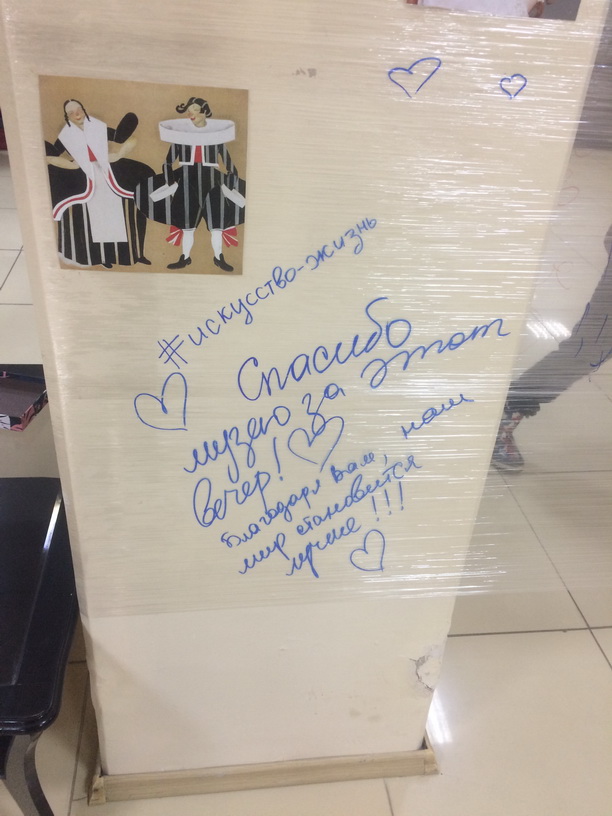 #искусство-жизнь
Спасибо
музею за этот
вечер!
благодаря вам, наш
мир становится
лучше!!!